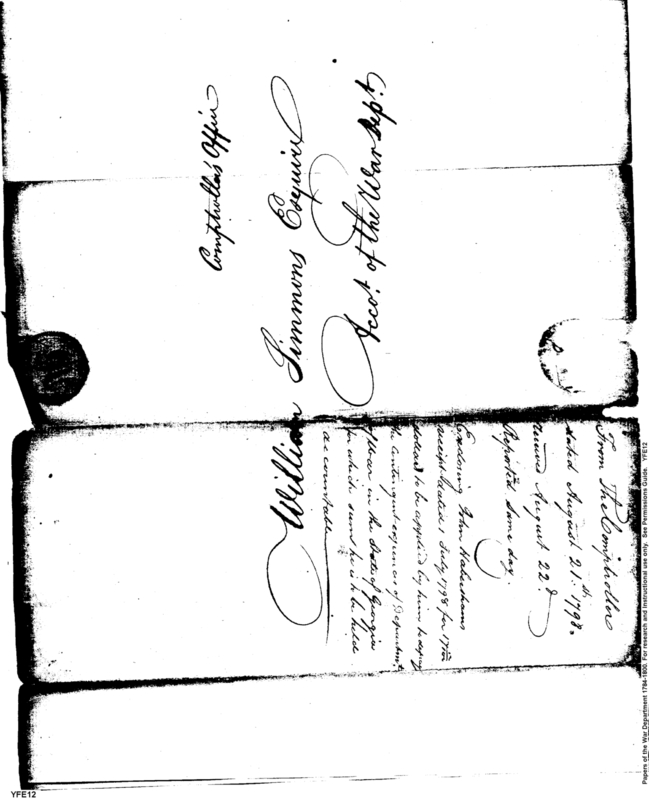 Comptrollers Office
William Simmons Esquire
Accot. of the War Dept.
From The Comptroller
dated August 21st. 1798.
August 22d.
Reported Same day.
Enclosing John Habershams
receipt dated 1 July 1798 for
dollars to be applied by him to
the contingent expences of Department
of War in the State of Georgia
for which sum he is to be held
accountable
Papers of the War Department 1784-1800. For research and instructional use only. See Permissions Guide. YFE12
YFE12